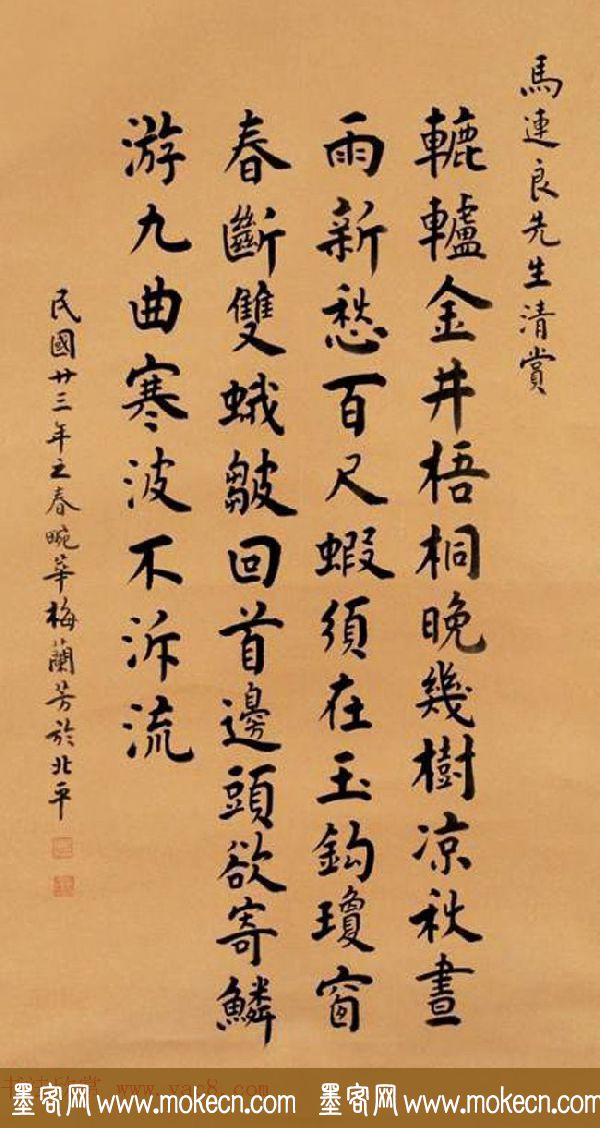 馬連良先生清賞
轆轤金井梧桐晚幾樹凉秋晝
雨新愁百尺蝦須在玉鈎瓊窗
春斷雙蛾皺回首邊頭欲寄鱗
游九曲寒波不泝流
民國廿三年之春畹華梅蘭芳於北平
书法欣赏 www.yac8.com
墨客网 www.mokecn.com 墨客网 www.mokecn.com